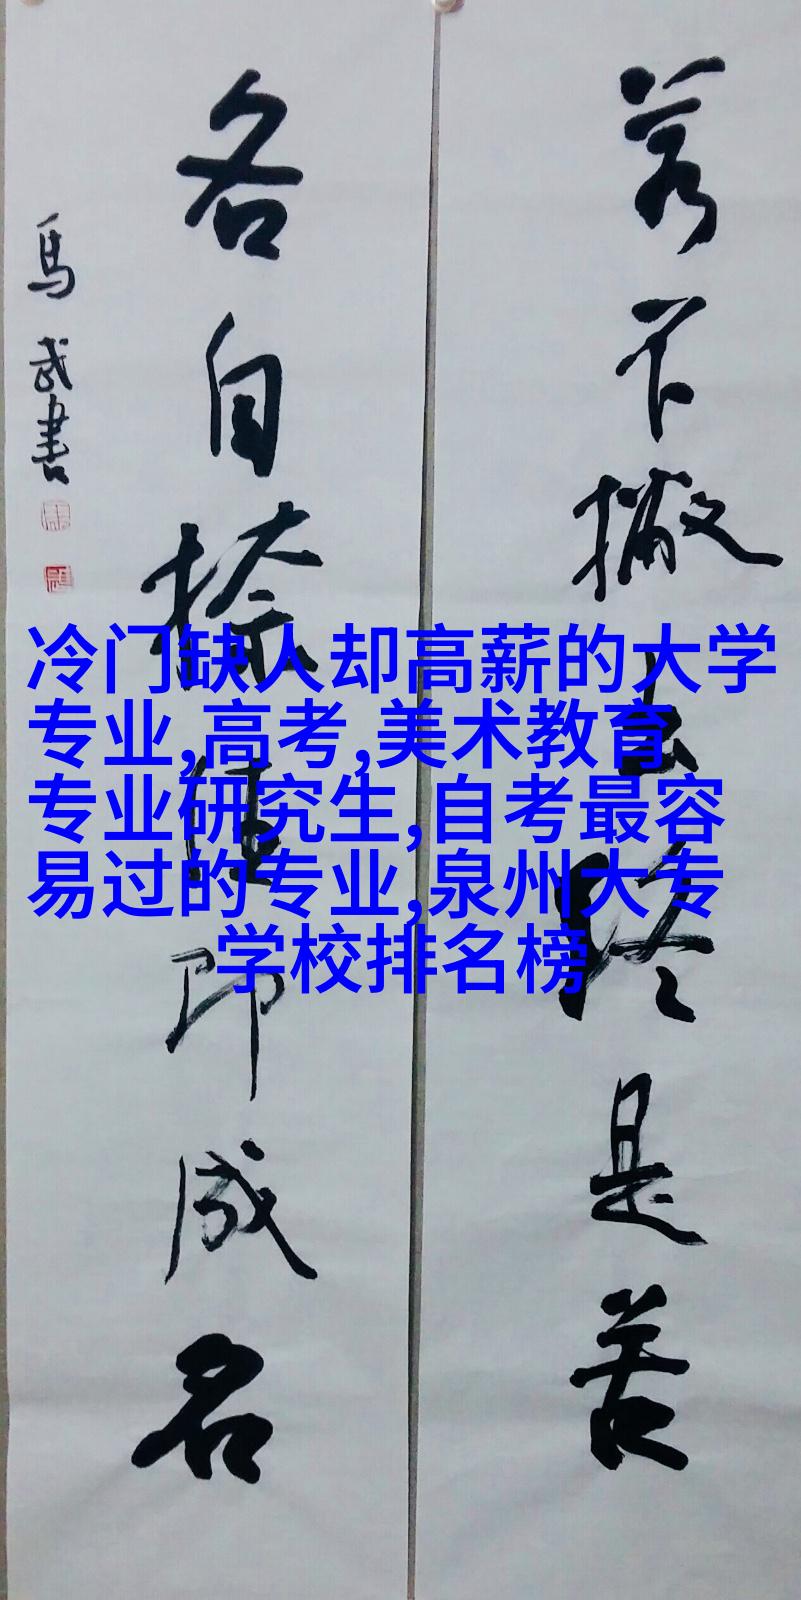 若不撇终是苦
各自捺住即成名
馬武書
冷门缺人却高薪的大学
专业,高考,美术教育
专业研究生,自考最容
易过的专业,泉州大专
学校排名榜